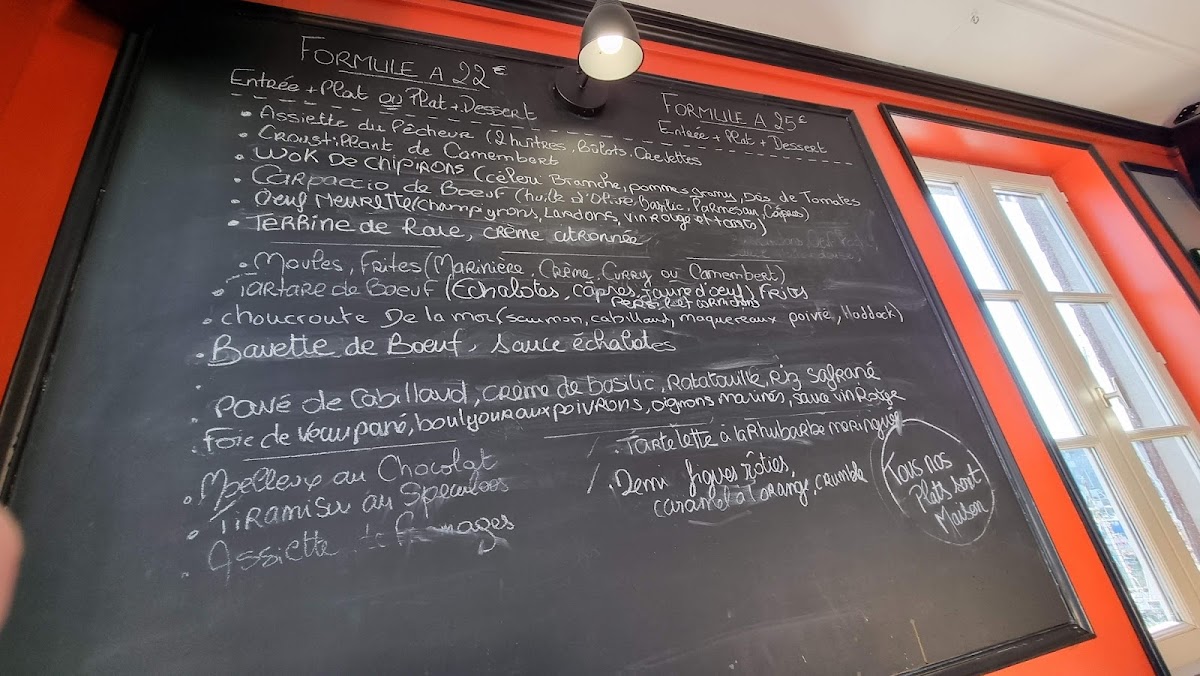 FORMULE A 22€
Entrée + Plat ou Plat + Dessert
FORMULE A 25€
Entrée + Plat + Dessert
• Assiette du Pêcheur (2 huîtres, Bulots, Crevettes
• Croustillant de Camembert
• Wok De Chipirons (céleri Branche, pommes granny, Dés de Tomates
• Carpaccio de Boeuf (huile d'Olive, Basilic, Parmesan, Câpres)
• Oeuf Meurette (champignons, Lardons, vin Rouge et toasts)
• Terrine de Raie, crème citronnée
• Moules, Frites (Marinière, Crème, Curry ou Camembert)
• Tartare de Boeuf (Echalotes, Câpres, Jaune d'oeuf) Frites
Persil et cornichons
• choucroute De la mer (saumon, cabillaud, maquereaux poivré, Haddock)
• Bavette de Boeuf, sauce échalotes
• Pavé de Cabillaud, crème de basilic, Ratatouille, Riz safrané
• Foie de Veau pané, boulgour aux poivrons, oignons marinés, sauce vin Rouge
• Moelleux au Chocolat
• Tiramisu au Speculoos
• Assiette de Fromages
/ . Tartelette à la Rhubarbe meringuée
/ . Demi figues rôties,
caramel à l'orange, crumble
Tous nos
Plats sont
Maison